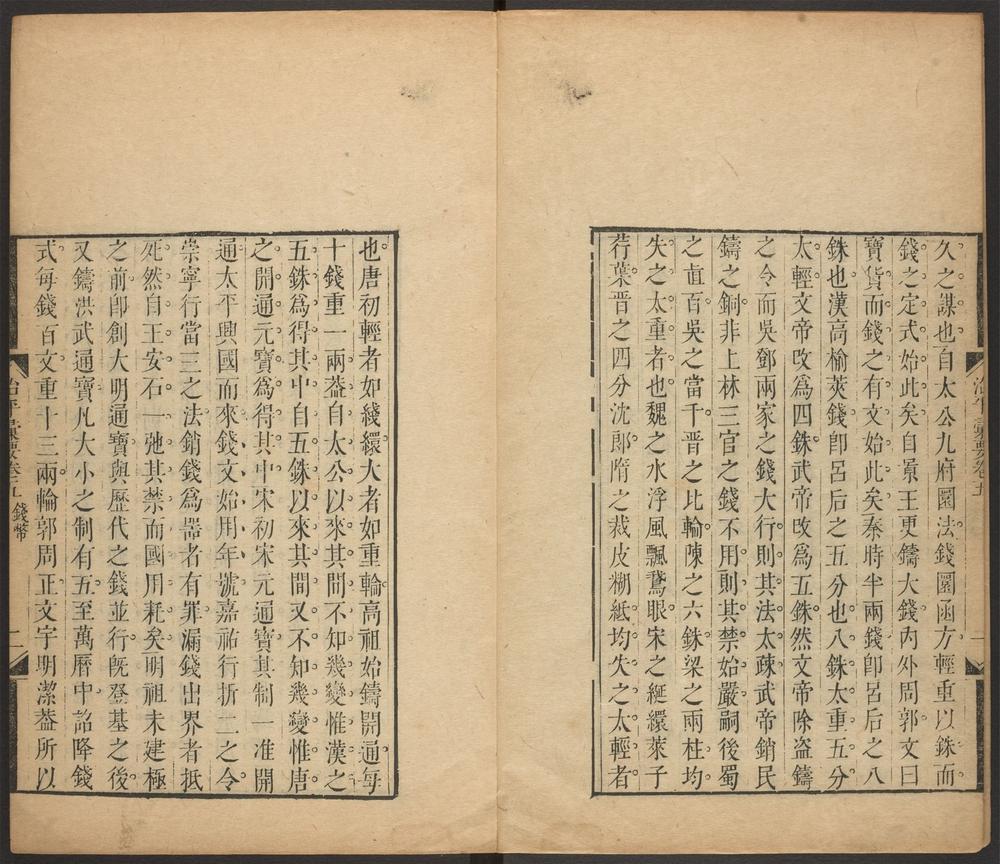 久之謀也自太公九府圜法錢圜函方輕重以銖而
錢之定式始此矣自景王更鑄大錢內外周郭文曰
寶貨而錢之有文始此矣秦時半兩錢卽呂后之八
銖也漢高榆莢錢卽呂后之五分也八銖太重五分
太輕文帝改爲四銖武帝改爲五銖然文帝除盜鑄
之令而吳鄧兩家之錢大行則其法太疎武帝銷民
鑄之銅非上林三官之錢不用則其禁始嚴嗣後蜀
之直百吳之當千晋之比輪陳之六銖梁之兩柱均
失之太重者也魏之水浮風飄鵞眼宋之綖繯萊子
荇葉晋之四分沈郞隋之裁皮糊紙均失之太輕者
也唐初輕者如綫繯大者如重輪高祖始鑄開通每
十錢重一兩葢自太公以來其間不知幾變惟漢之
五銖爲得其中自五銖以來其間又不知幾變惟唐
之開通元寶爲得其中宋初宋元通寶其制一准開
通太平興國而來錢文始用年號嘉祐行折二之令
崇寧行當三之法銷錢爲噐者有罪漏錢出界者抵
死然自王安石一弛其禁而國用耗矣明祖未建極
之前卽創大明通寶與歷代之錢並行旣登基之後
又鑄洪武通寶凡大小之制有五至萬曆中詔降錢
式每錢百文重十三兩輪郭周正文字明潔葢所以
錢幣
二